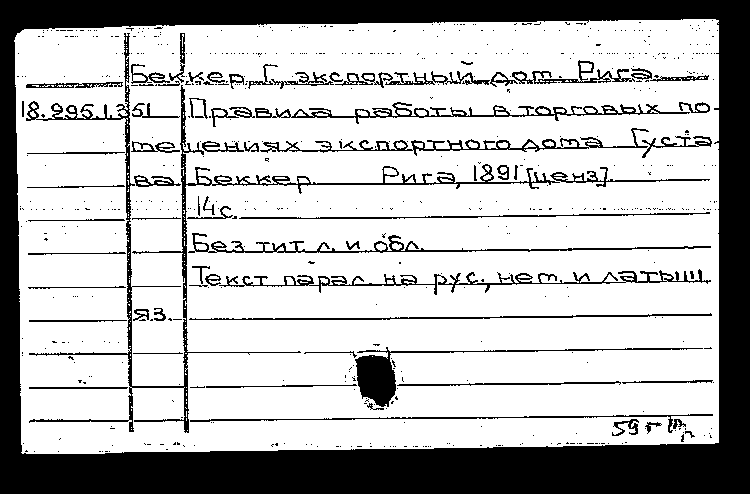 Беккер, Г., экспортный дом. Рига.
18.295.1.351 Правила работы в торговых по-
мещениях экспортного дома Густа-
ва Беккер. Рига, 1891 [ценз].
14 с.
Без тит. л. и обл.
Текст парал. на рус., нем. и латыш.
яз.
59